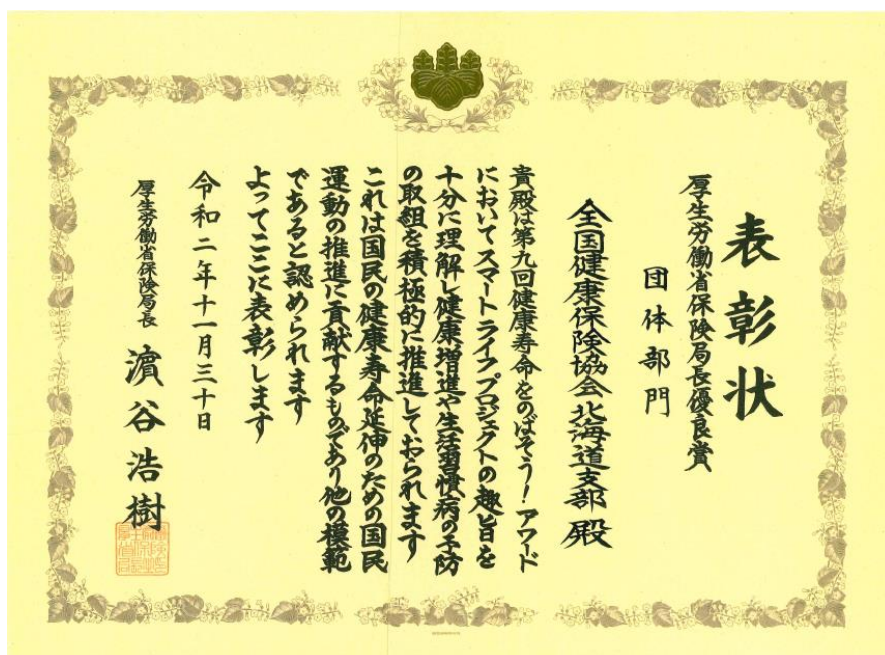 表彰状
厚生労働省保険局長優良賞
団体部門
全国健康保険協会北海道支部 殿
貴殿は第九回健康寿命をのばそう!アワード
においてスマートライフプロジェクトの趣旨を
十分に理解し健康増進や生活習慣病の予防
の取組を積極的に推進しておられます
これは国民の健康寿命延伸のための国民
運動の推進に貢献するものであり他の模範
であると認められます
よってここに表彰します
令和二年十一月三十日
厚生労働省保険局長 濵谷浩樹